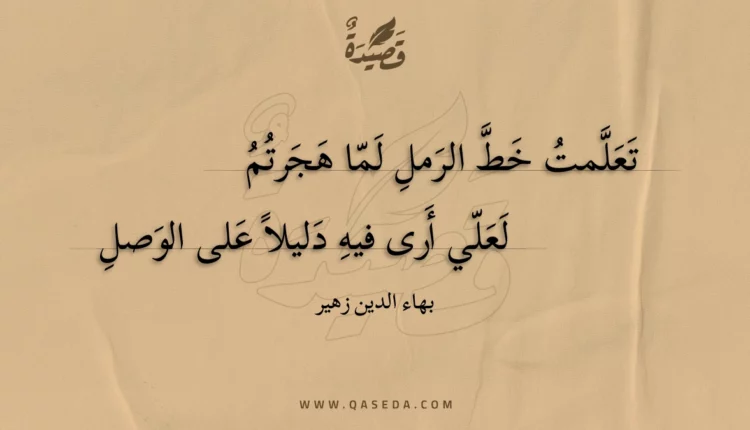 قَصِيدَةٌ
تَعَلَّمتُ خَطَّ الرَملِ لَمّا هَجَرتُمُ
لَعَلّي أَرى فيهِ دَليلاً عَلى الوَصلِ
بهاء الدين زهير
WWW.QASEDA.COM